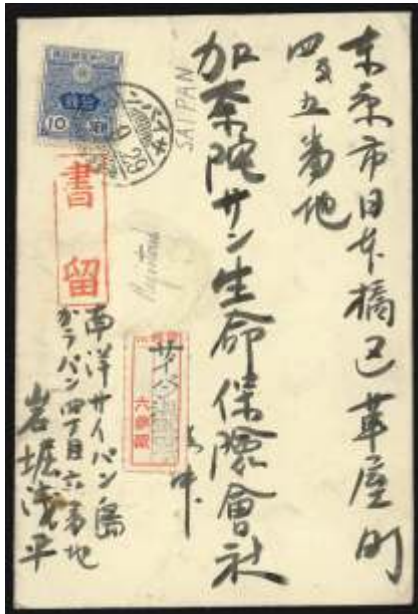 東京市日本橋区草屋町
四ノ五番地
加奈陀サン生命保険會社
御中
SAIPAN
サイパン
10 SEN
書留
サイパン
六参
南洋サイパン島
ガラパン四丁目六番地
岩堀